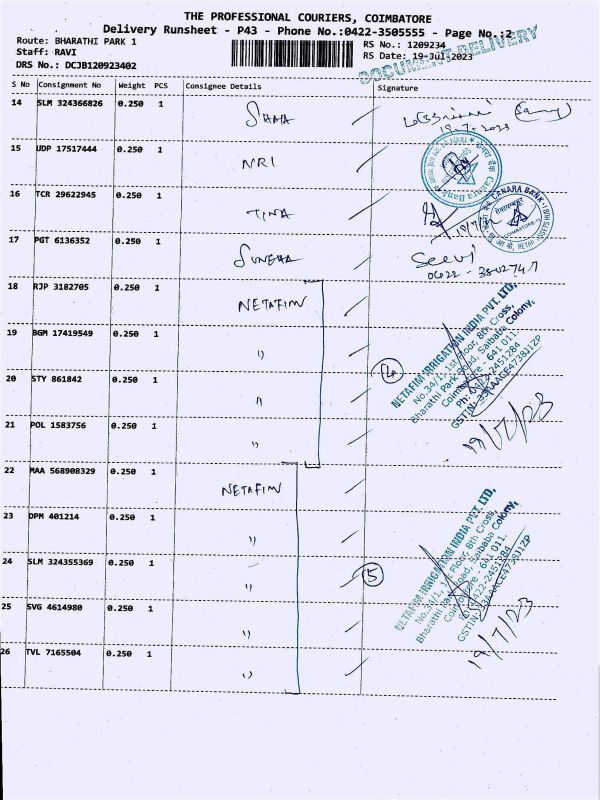 THE PROFESSIONAL COURIERS, COIMBATORE
Delivery Runsheet - P43 - Phone No.:0422-3505555 - Page No.:2
Route: BHARATHI PARK 1
RS No.: 1209234
Staff: RAVI
RS Date: 19-Jul-2023
DRS No.: DCJB120923402
DOCUMENT DELIVERY
S No Consignment No Weight PCS Consignee Details Signature
14 SLM 324366826 0.250 1
19.7.2023
15 UDP 17517444 0.250 1 NRI
Canara Bank
16 TCR 29622945 0.250 1 TINA
CANARA BANK
COIMBATORE-11
17 PGT 6136352 0.250 1
18 RJP 3182705 0.250 1 NETAFIM
19 BGM 17419549 0.250 1 "
20 STY 861842 0.250 1 "
21 POL 1583756 0.250 1 "
NETAFIM IRRIGATION INDIA PVT. LTD,
No.34/1, 1st Floor, 8th Cross,
Bharathi Park Road, Saibaba Colony,
Coimbatore - 641 011.
Ph: 0422-2451284
GSTIN: 33AAACE4738J1ZP
19/7/23
22 MAA 568908329 0.250 1 NETAFIM
23 DPM 401214 0.250 1 "
24 SLM 324355369 0.250 1 "
5
25 SVG 4614980 0.250 1 "
26 TVL 7165504 0.250 1 "
NETAFIM IRRIGATION INDIA PVT. LTD,
No.34/1, 1st Floor, 8th Cross,
Bharathi Park Road, Saibaba Colony,
Coimbatore - 641 011.
Ph: 0422-2451284
GSTIN: 33AAACE4738J1ZP
19/7/23